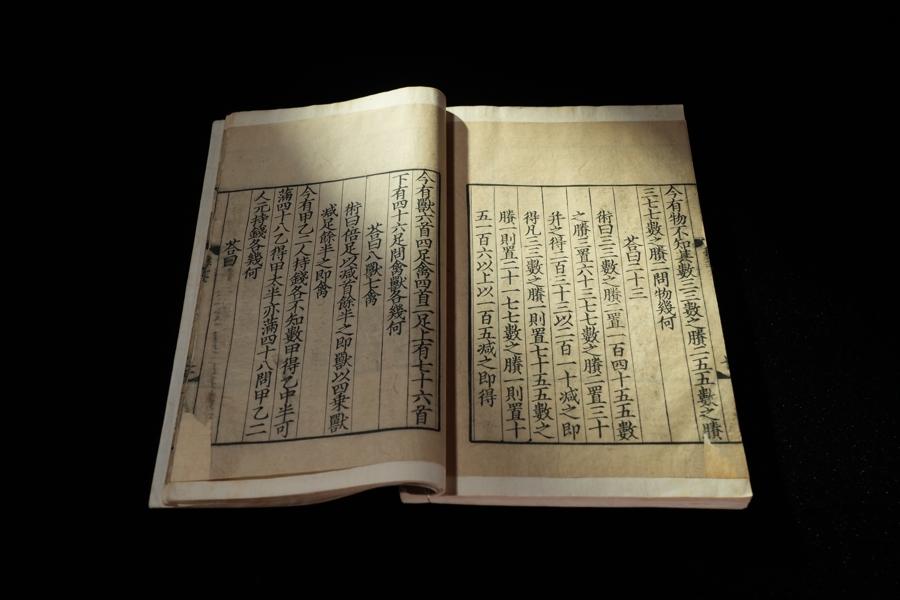 今有物不知其數三三數之賸二五五數之賸
三七七數之賸二問物幾何
荅曰二十三
術曰三三數之賸二置一百四十五五數
之賸三置六十三七七數之賸二置三十
并之得二百三十三以二百一十減之即
得凡三三數之賸一則置七十五五數之
賸一則置二十一七七數之賸一則置十
五一百六以上以一百五減之即得
今有獸六首四足禽四首二足上有七十六首
下有四十六足問禽獸各幾何
荅曰八獸七禽
術曰倍足以減首餘半之即獸以四乘獸
減足餘半之即禽
今有甲乙二人持錢各不知數甲得乙中半可
滿四十八乙得甲太半亦滿四十八問甲乙二
人元持錢各幾何
荅曰